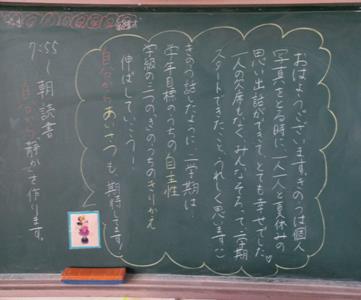 おはようございます。きのうは個人
写真をとる時に、一人一人と夏休みの
思い出話ができてとても幸せでした♡
一人の欠席もなく、みんなそろって二学期
スタートできたこと、うれしく思います。
きのう話したように、二学期は、
学年目標のうちの自主性
学級の三つのきのうちのきりかえ
伸ばしていこう！
自分からあいさつも、期待してます。
7:55〜朝読書
自分から静かさを作ります。